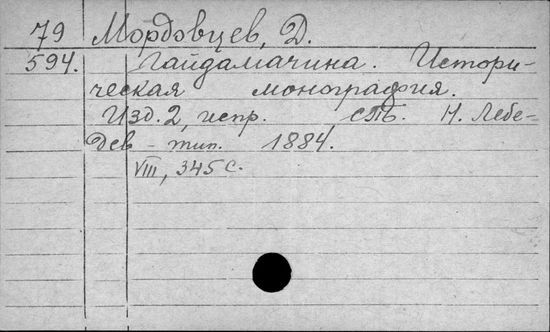 79 Мордовцев, Д.
594. Гайдамачина. Истори-
ческая монография.
Изд. 2, испр. СПб. Н. Лебе-
дев - тип. 1884.
VIII, 345 с.